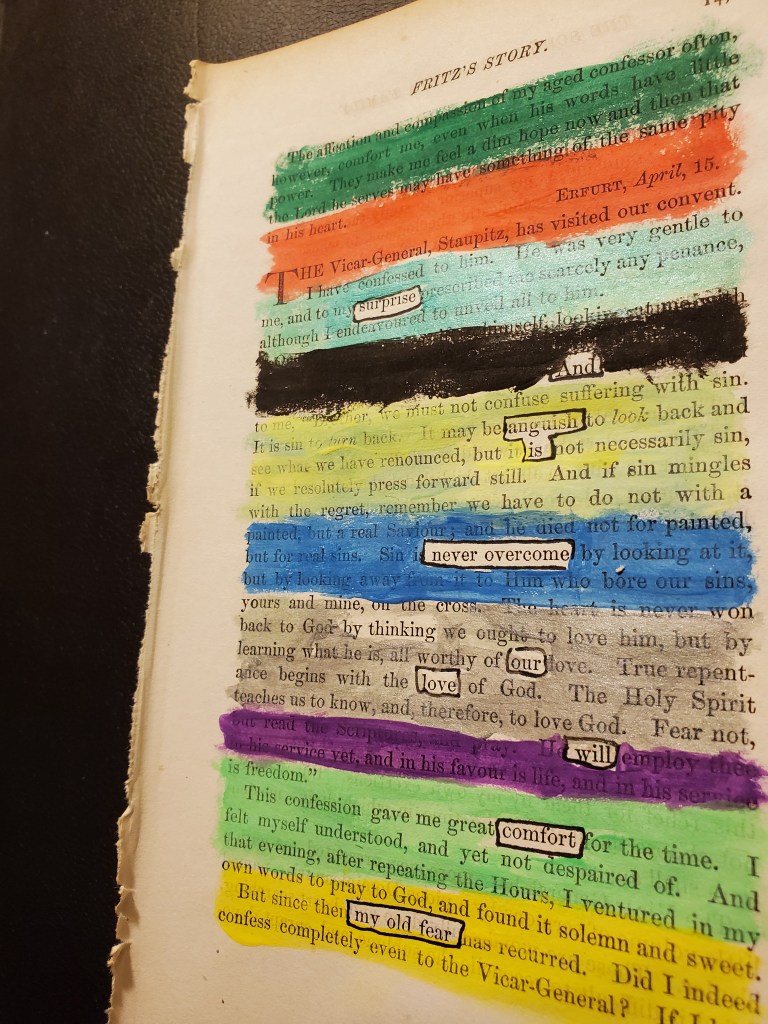 FRITZ'S STORY.
The affection and compassion of my aged confessor often,
however, comfort me, even when his words have little
power. They make me feel a dim hope now and then that
the Lord he serves may have something of the same pity
in his heart.
ERFURT, April, 15.
THE Vicar-General, Staupitz, has visited our convent.
I have confessed to him. He was very gentle to
me, and to my surprise prescribed me scarcely any penance,
although I endeavoured to unveil all to him.
himself, looking at me with
And
to me, we must not confuse suffering with sin.
It is sin to turn back. It may be anguish to look back and
see what we have renounced, but it is not necessarily sin,
if we resolutely press forward still. And if sin mingles
with the regret, remember we have to do not with a
painted, but a real Saviour; and he died not for painted,
but for real sins. Sin is never overcome by looking at it,
but by looking away from it to Him who bore our sins,
yours and mine, on the cross. The heart is never won
back to God by thinking we ought to love him, but by
learning what he is, all worthy of our love. True repent-
ance begins with the love of God. The Holy Spirit
teaches us to know, and, therefore, to love God. Fear not,
but read the Scriptures, and pray. He will employ thee
in his service yet, and in his favour is life, and in his service
is freedom."
This confession gave me great comfort for the time. I
felt myself understood, and yet not despaired of. And
that evening, after repeating the Hours, I ventured in my
own words to pray to God, and found it solemn and sweet.
But since then my old fear has recurred. Did I indeed
confess completely even to the Vicar-General? If I